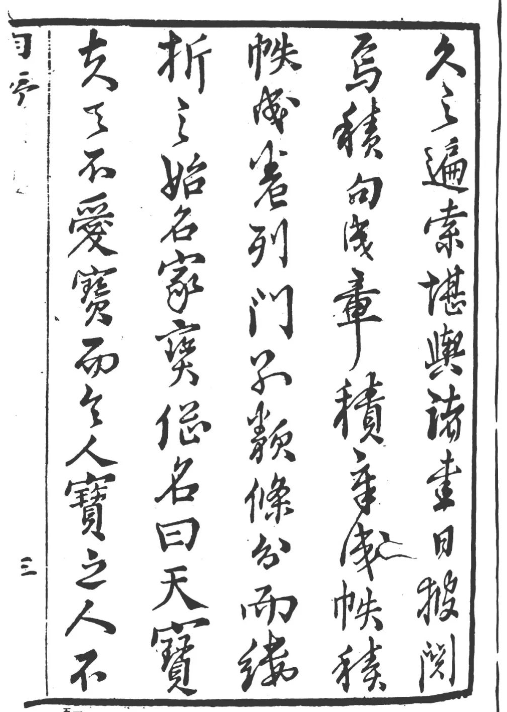 久之遍索堪輿諸書日披閱
焉積句成章積章成帙積
帙成卷列門分類條分而縷
析之始名家寶繼名曰天寶
夫天不愛寶而令人寶之人不
自序
三